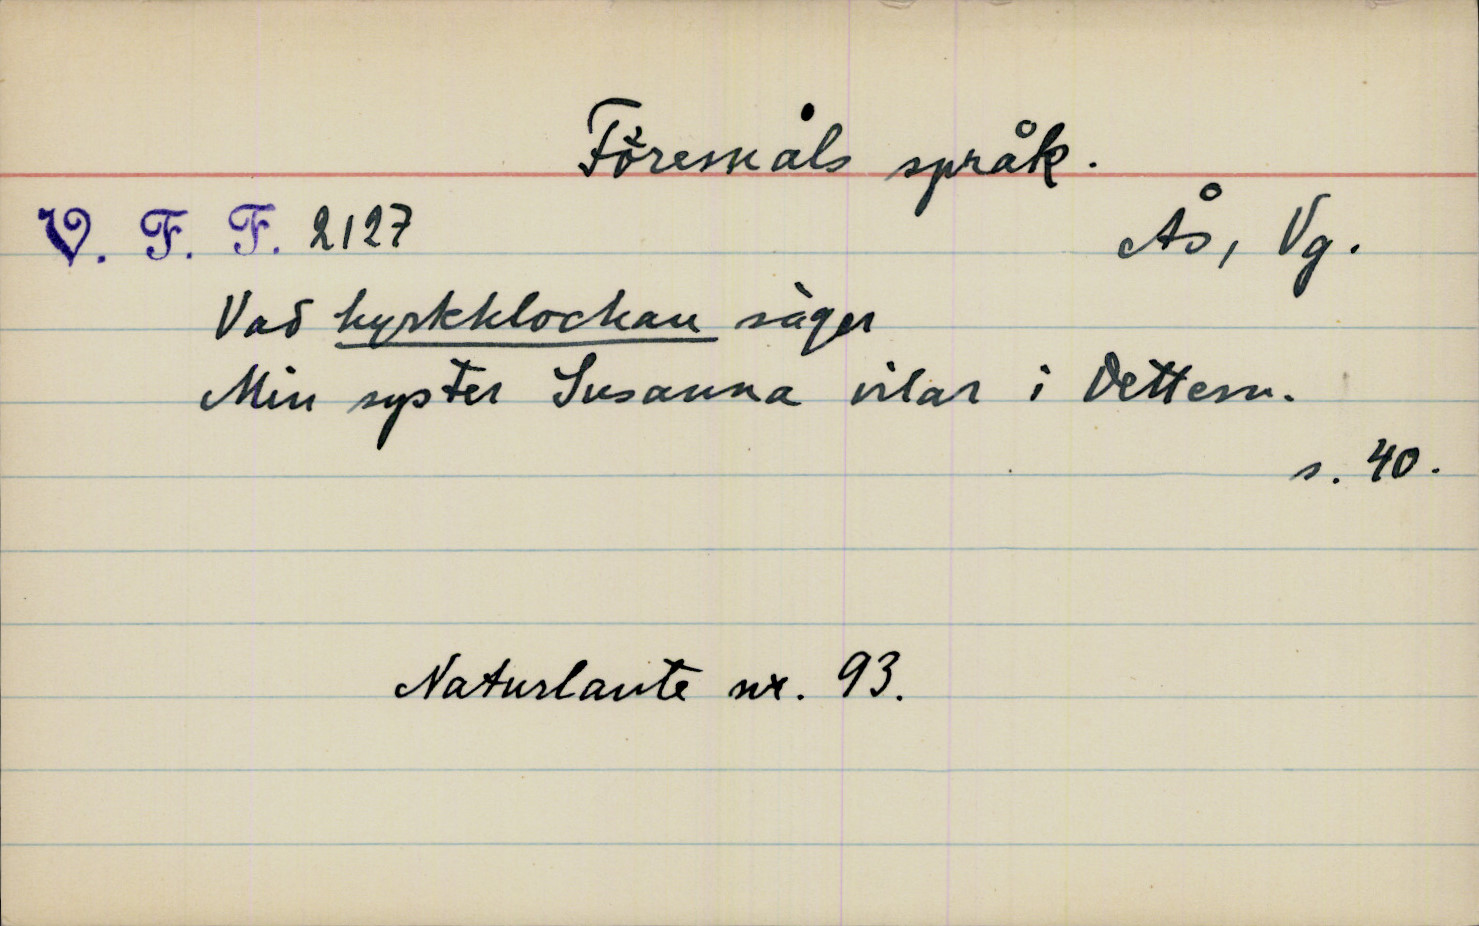 Föremåls språk.
V. F. F. 2127 Ås, Vg.
Vad kyrkklockan säger
Min syster Susanna vilar i Vettern.
s. 40.
Naturlaute nr. 93.